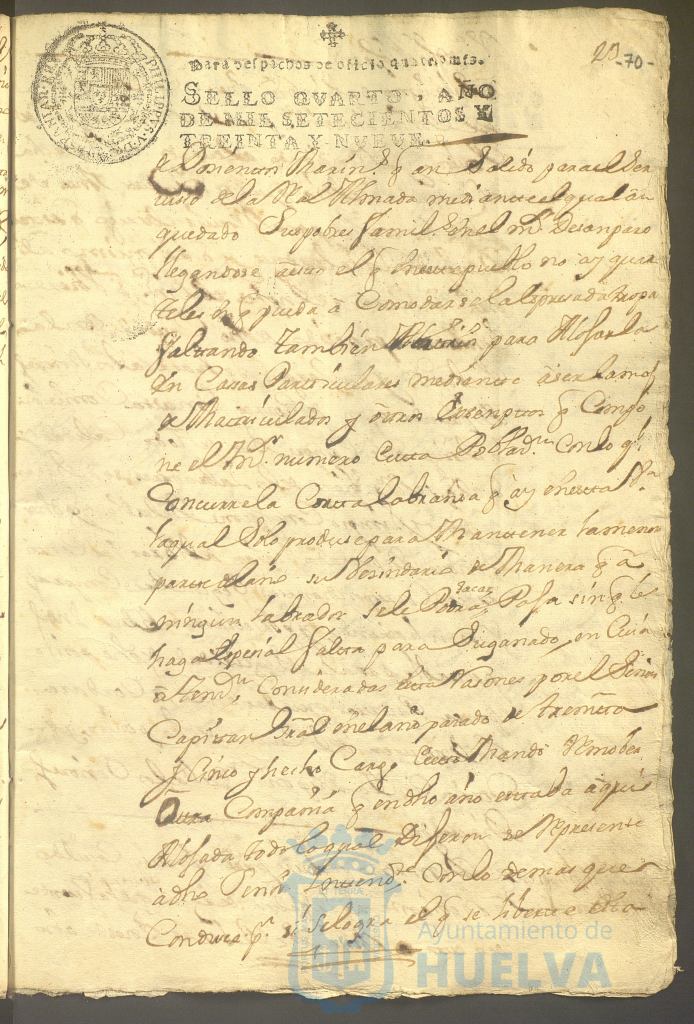 29 -70-
PHILIPPUS V D
Para despachos de oficio quatro mrs.
SELLO QVARTO, AÑO
DE MIL SETECIENTOS Y
TREINTA Y NVEVE.
Marin.s q an Salido para el Ser
uisio de la Rl Armada mediante el qual an
quedado Sus pobres famil.s en el mr desanparo
llegandose a esto el q en este pueblo no ay quar
teles en q pueda a Comodarse la espresada tropa
faltando tambien para Alojarla
En Casas Particulares mediante a ser la mr
a Matriculados y otros Exsemptos q Compo
ne el mr numero Con lo q.
Concurre la Corta labransa q ay en esta V.a
la qual Solo produse para Mantener la menor
parte del año su Vesindario de Manera q a
ningun labrador se le Podra Sacar Paja sin q le
haga Espesial falta para Su ganado, en Cuia
atens.n Consideradas estas Rasones por el Señor
Capitan Gral en el año pasado de treinta
y Cinco y hecho Cargo Mando Remober
Otra Compañia q en dho año estaba aqui
Alojada todo lo qual Dijeron se Represente
a dho Señor Intend.te Con lo demas que
Condusca p.a si se logra el q se liberte esta
Ayuntamiento de
HUELVA